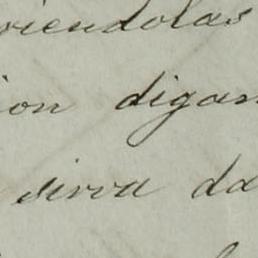 riendolas
ion digan
sirva da